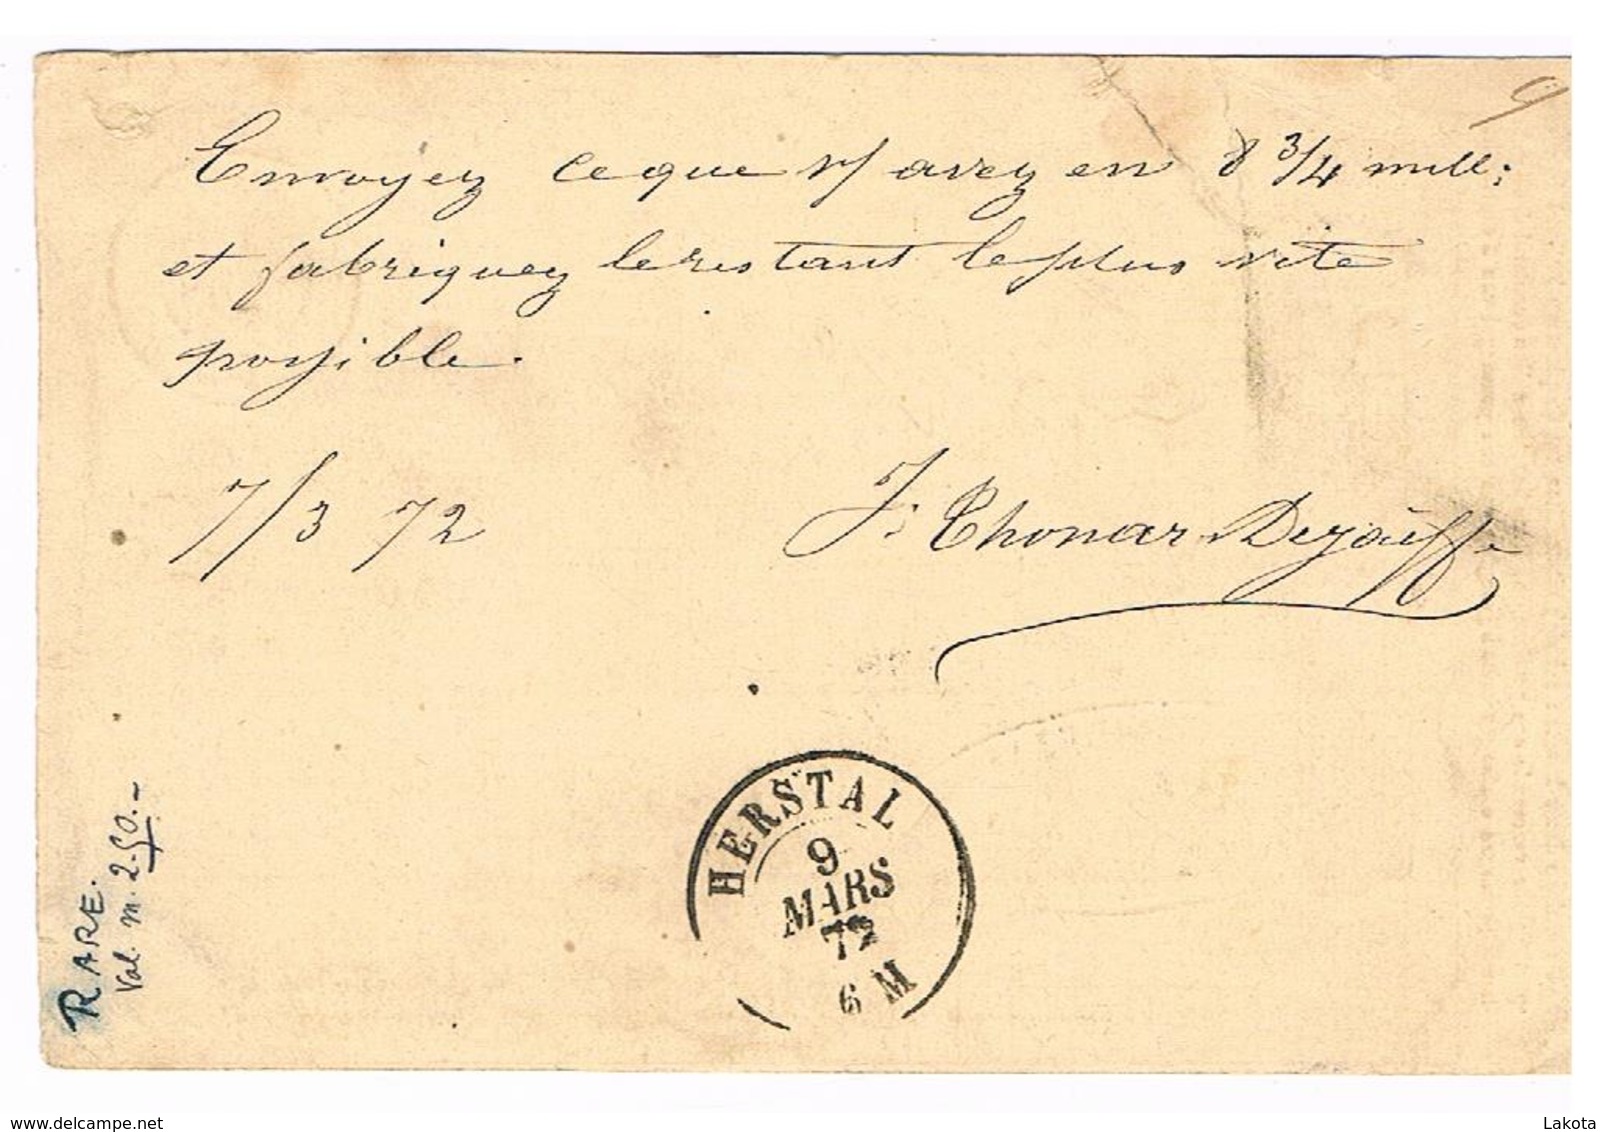 Envoyez ce que v/ avez en 8 3/4 mill:
et fabriquez le restant le plus vite
possible.
7/3 72
J. Thonar Dejaiffe
HERSTAL
9
MARS
72
6 M
RARE.
Val. m. 2.50.-
delcampe.net
Lakota